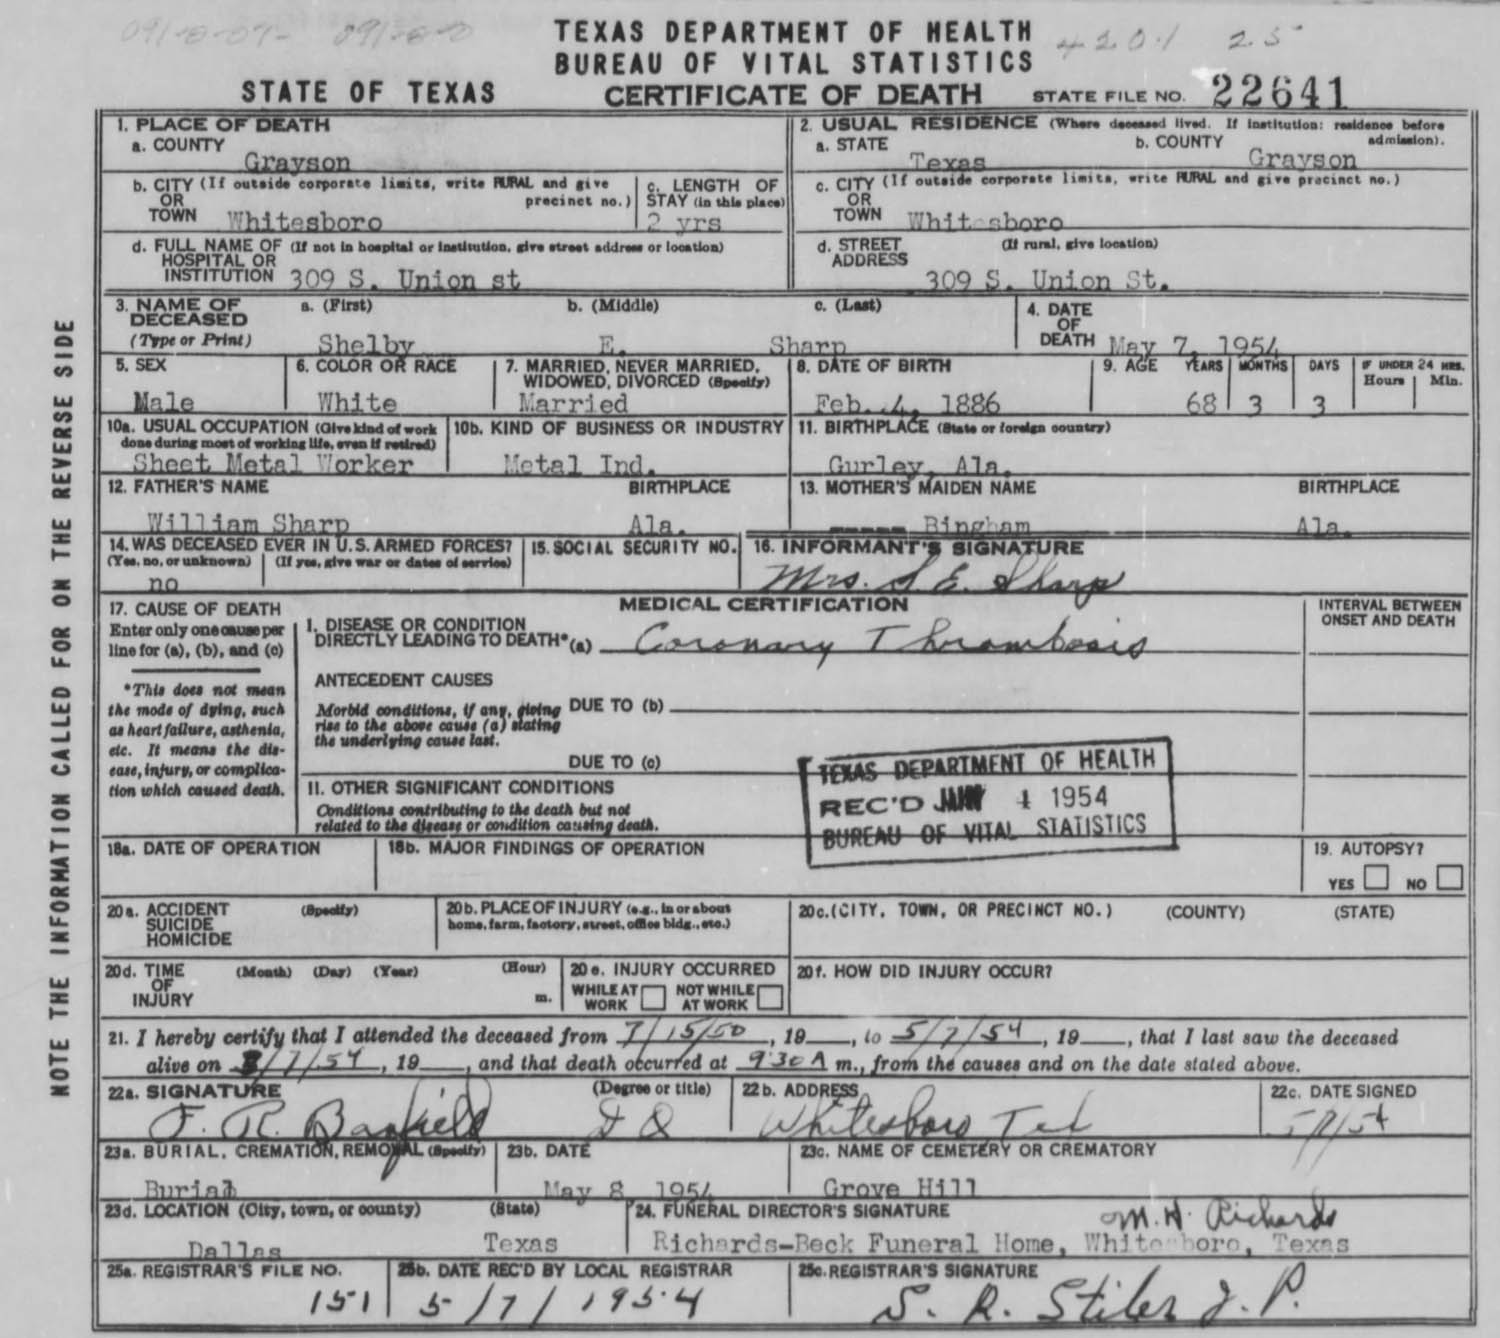 TEXAS DEPARTMENT OF HEALTH
BUREAU OF VITAL STATISTICS
4201 25
STATE OF TEXAS CERTIFICATE OF DEATH STATE FILE NO. 22641
NOTE THE INFORMATION CALLED FOR ON THE REVERSE SIDE
1. PLACE OF DEATH
a. COUNTY
Grayson
2. USUAL RESIDENCE (Where deceased lived. If institution: residence before admission).
a. STATE b. COUNTY
Texas Grayson
b. CITY (If outside corporate limits, write RURAL and give precinct no.)
OR
TOWN Whitesboro
c. LENGTH OF
STAY (in this place)
2 yrs
c. CITY (If outside corporate limits, write RURAL and give precinct no.)
OR
TOWN Whitesboro
d. FULL NAME OF (If not in hospital or institution, give street address or location)
HOSPITAL OR
INSTITUTION 309 S. Union st
d. STREET (If rural, give location)
ADDRESS
309 S. Union St.
3. NAME OF DECEASED a. (First) b. (Middle) c. (Last)
(Type or Print) Shelby E. Sharp
4. DATE
OF
DEATH May 7, 1954
5. SEX
Male
6. COLOR OR RACE
White
7. MARRIED, NEVER MARRIED,
WIDOWED, DIVORCED (Specify)
Married
8. DATE OF BIRTH
Feb. 4, 1886
9. AGE YEARS MONTHS DAYS IF UNDER 24 HRS.
Hours Min.
68 3 3
10a. USUAL OCCUPATION (Give kind of work
done during most of working life, even if retired)
Sheet Metal Worker
10b. KIND OF BUSINESS OR INDUSTRY
Metal Ind.
11. BIRTHPLACE (State or foreign country)
Gurley, Ala.
12. FATHER'S NAME BIRTHPLACE
William Sharp Ala.
13. MOTHER'S MAIDEN NAME BIRTHPLACE
----- Bingham Ala.
14. WAS DECEASED EVER IN U.S. ARMED FORCES?
(Yes, no, or unknown) (If yes, give war or dates of service)
no
15. SOCIAL SECURITY NO.
16. INFORMANT'S SIGNATURE
Mrs. S. E. Sharp
17. CAUSE OF DEATH
Enter only one cause per
line for (a), (b), and (c)
*This does not mean
the mode of dying, such
as heart failure, asthenia,
etc. It means the dis-
ease, injury, or complica-
tion which caused death.
MEDICAL CERTIFICATION
INTERVAL BETWEEN
ONSET AND DEATH
I. DISEASE OR CONDITION
DIRECTLY LEADING TO DEATH* (a) Coronary Thrombosis
ANTECEDENT CAUSES
Morbid conditions, if any, giving DUE TO (b)
rise to the above cause (a) stating
the underlying cause last.
DUE TO (c)
II. OTHER SIGNIFICANT CONDITIONS
Conditions contributing to the death but not
related to the disease or condition causing death.
TEXAS DEPARTMENT OF HEALTH
REC'D 1954
BUREAU OF VITAL STATISTICS
18a. DATE OF OPERATION
18b. MAJOR FINDINGS OF OPERATION
19. AUTOPSY?
YES NO
20a. ACCIDENT (Specify)
SUICIDE
HOMICIDE
20b. PLACE OF INJURY (e.g., in or about
home, farm, factory, street, office bldg., etc.)
20c. (CITY, TOWN, OR PRECINCT NO.) (COUNTY) (STATE)
20d. TIME (Month) (Day) (Year) (Hour)
OF
INJURY m.
20e. INJURY OCCURRED
WHILE AT WORK NOT WHILE AT WORK
20f. HOW DID INJURY OCCUR?
21. I hereby certify that I attended the deceased from 7/15/50, 19__, to 5/7/54, 19__, that I last saw the deceased
alive on 5/7/54, 19__, and that death occurred at 9:30 A m., from the causes and on the date stated above.
22a. SIGNATURE (Degree or title)
F. R. Banfield D O
22b. ADDRESS
Whitesboro Tex
22c. DATE SIGNED
5/7/54
23a. BURIAL, CREMATION, REMOVAL (Specify)
Burial
23b. DATE
May 8 1954
23c. NAME OF CEMETERY OR CREMATORY
Grove Hill
23d. LOCATION (City, town, or county) (State)
Dallas Texas
24. FUNERAL DIRECTOR'S SIGNATURE
M. H. Richards
Richards-Beck Funeral Home, Whitesboro, Texas
25a. REGISTRAR'S FILE NO.
151
25b. DATE REC'D BY LOCAL REGISTRAR
5/7/1954
25c. REGISTRAR'S SIGNATURE
S. R. Stiles J. P.